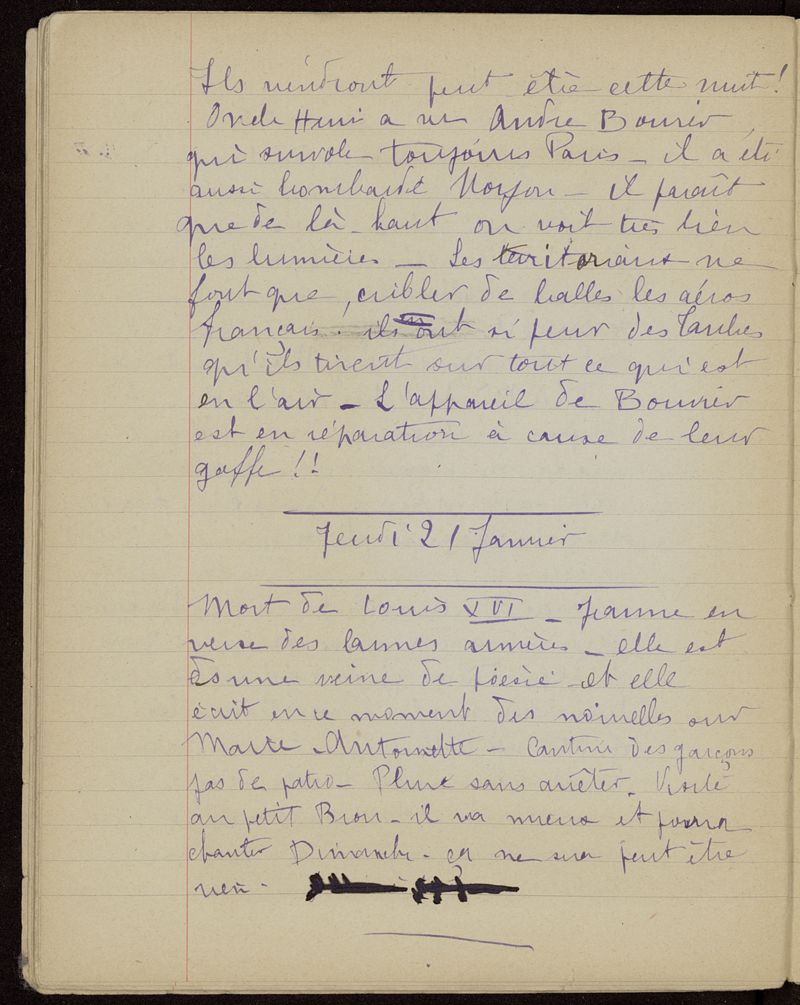 Ils viendront peut être cette nuit!
Oncle Henri a vu André Bouvier,
qui survole toujours Paris - il a été
aussi bombardé Noyon - il paraît
que de là-haut on voit très bien
les lumières - Les territoriaux ne
font que cribler de balles les aéros
français! ils ont si peur des Taubes
qu'ils tirent sur tout ce qui est
en l'air - L'appareil de Bouvier
est en réparation à cause de leur
gaffe!!
Jeudi 21 Janvier
Mort de Louis XVI - Jeanne en
verse des larmes amères - elle est
ds une veine de poésie et elle
écrit en ce moment des nouvelles sur
Marie Antoinette - Cantine des garçons
pas de patro - Pluie sans arrêter. Visite
au petit Bron - il va mieux et pourra
chanter Dimanche. ça ne sera peut être
rien.